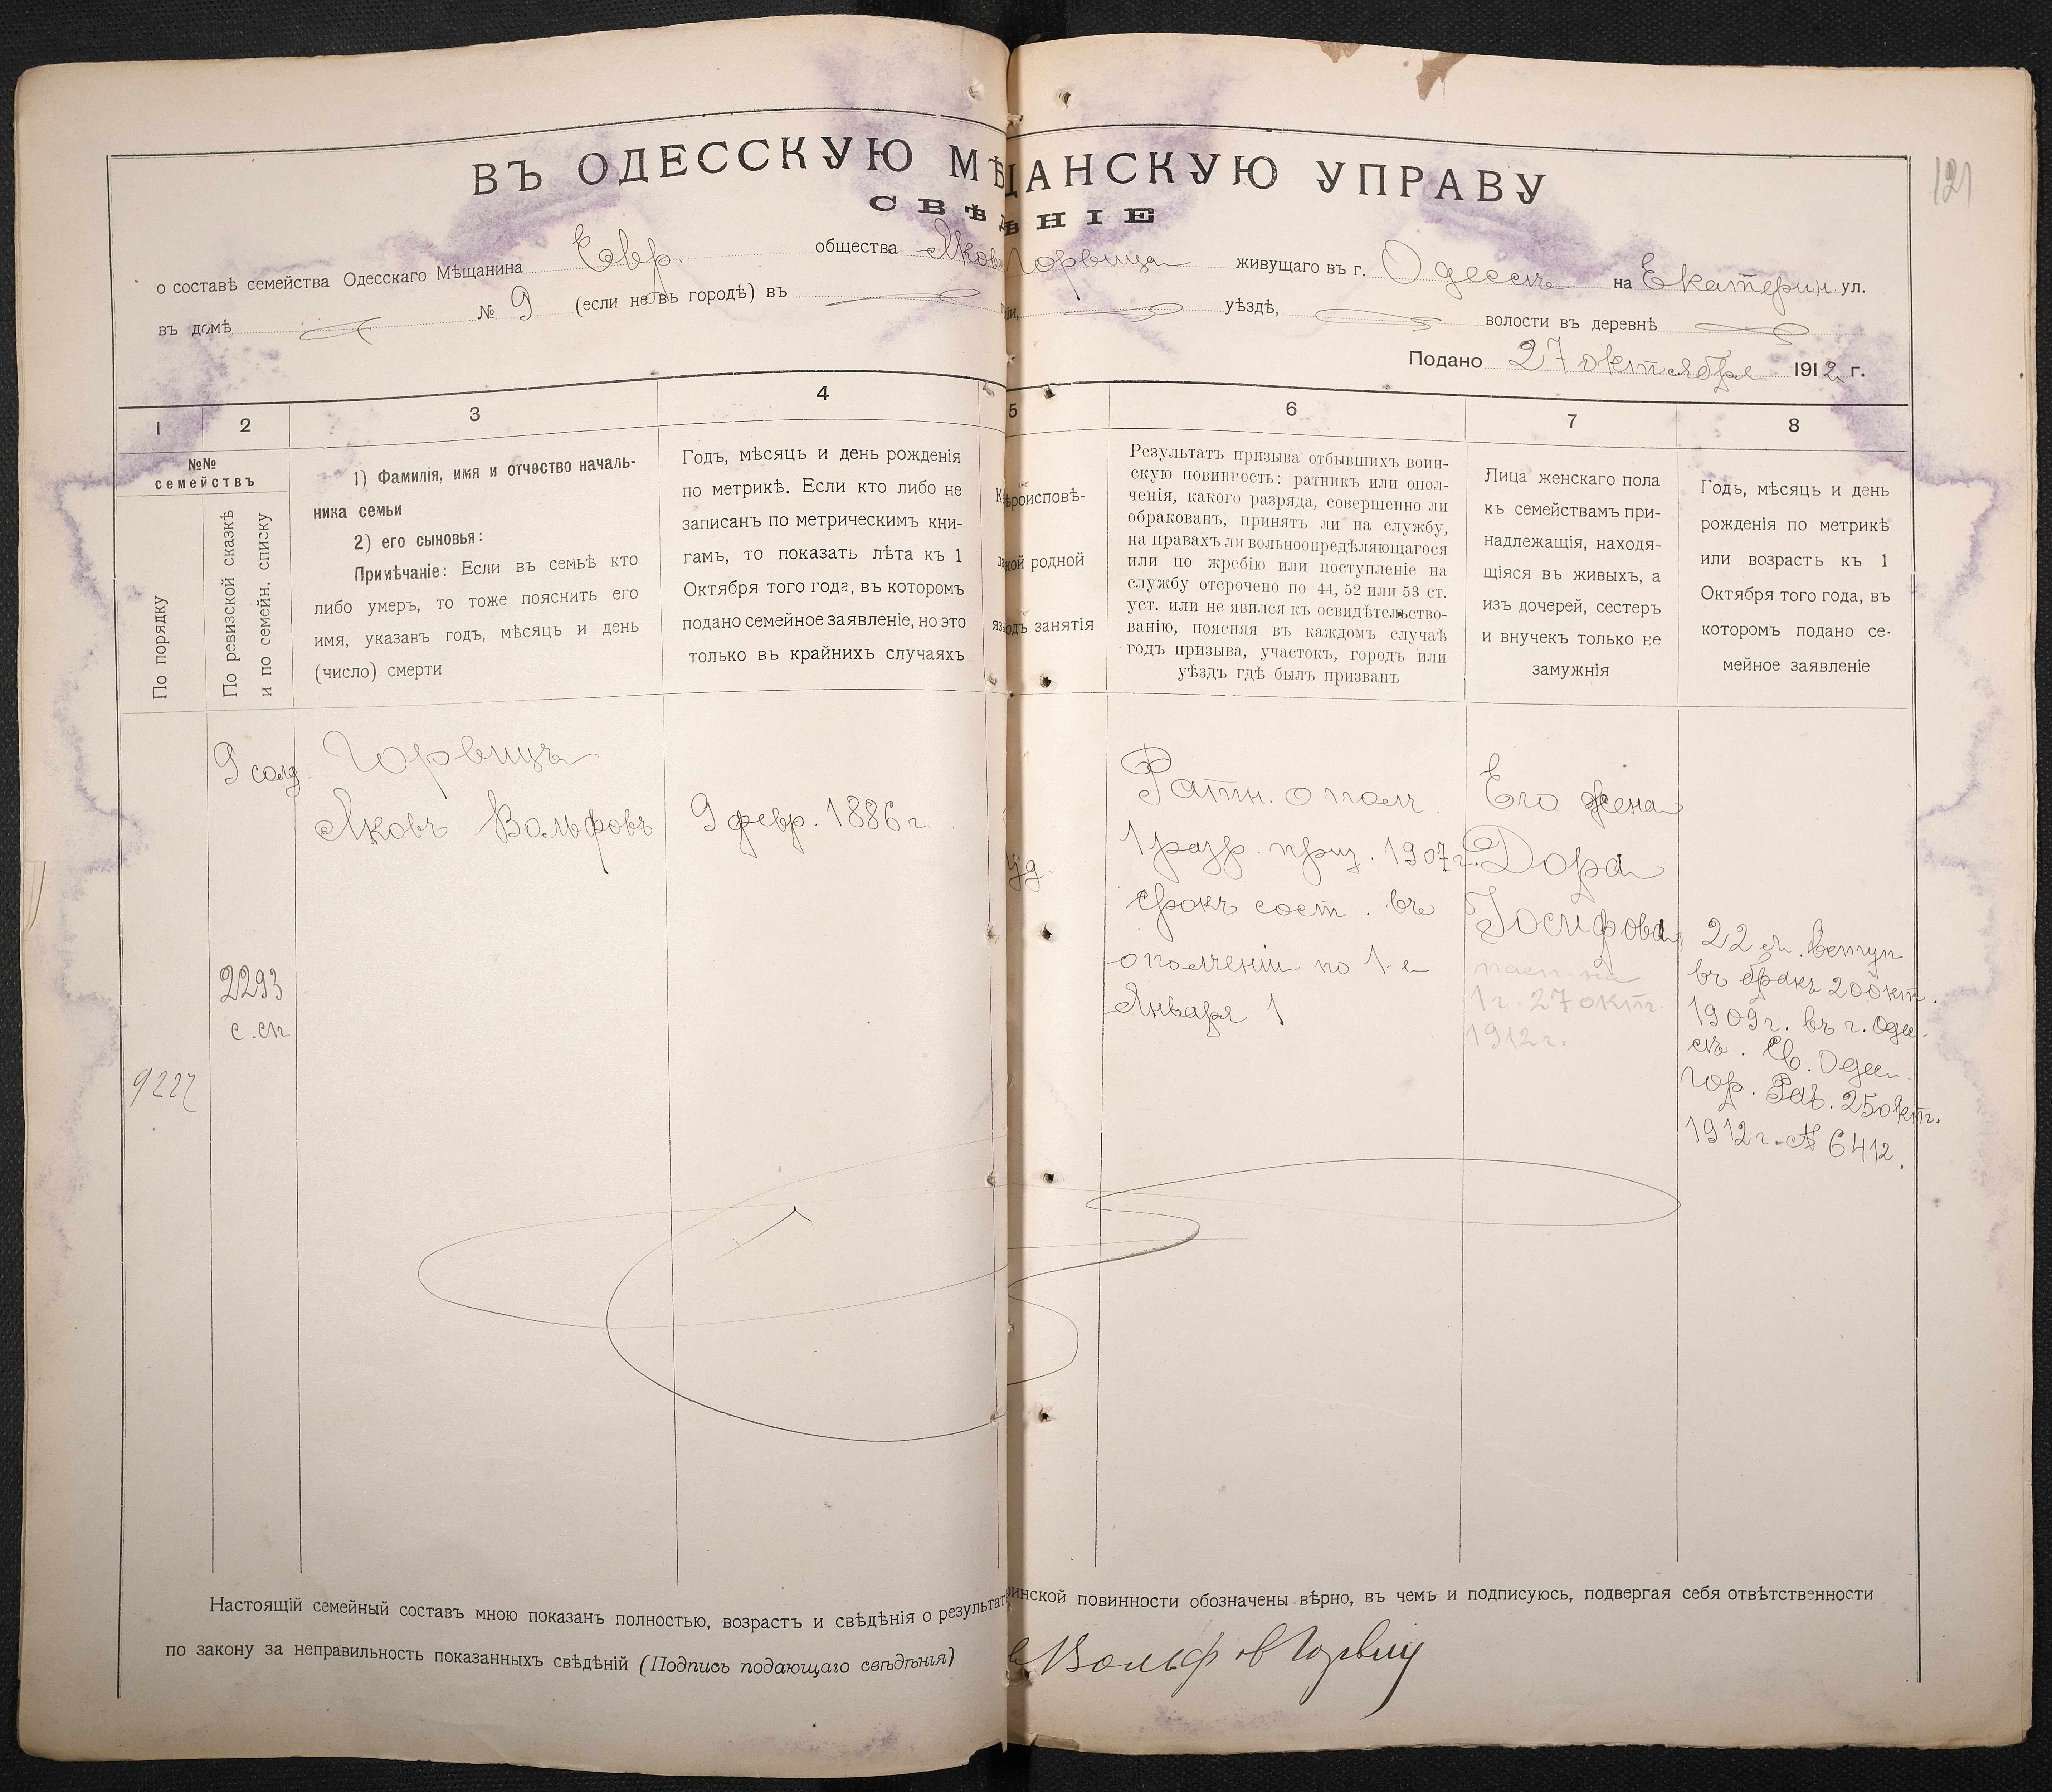 121
ВЪ ОДЕССКУЮ МѢЩАНСКУЮ УПРАВУ
СВѢ ѢНІЕ
о составѣ семейства Одесскаго Мѣщанина Евр. общества Якова Горвица живущаго въ г. Одессѣ на Екатерин. ул.
въ домѣ № 9 (если не въ городѣ) въ ніи, уѣздѣ, волости въ деревнѣ
Подано 27 октября 1912 г.
1 2 3 4 5 6 7 8
№№ семействъ
По порядку
По ревизской сказкѣ
и по семейн. списку
1) Фамилія, имя и отчество началь-
ника семьи
2) его сыновья:
Примѣчаніе: Если въ семьѣ кто
либо умеръ, то тоже пояснить его
имя, указавъ годъ, мѣсяцъ и день
(число) смерти
Годъ, мѣсяцъ и день рожденія
по метрикѣ. Если кто либо не
записанъ по метрическимъ кни-
гамъ, то показать лѣта къ 1
Октября того года, въ которомъ
подано семейное заявленіе, но это
только въ крайнихъ случаяхъ
ѣроисповѣ-
кой родной
одъ занятія
Результатъ призыва отбывшихъ воин-
скую повинность: ратникъ или опол-
ченія, какого разряда, совершенно ли
обракованъ, принятъ ли на службу,
на правахъ ли вольноопредѣляющагося
или по жребію или поступленіе на
службу отсрочено по 44, 52 или 53 ст.
уст. или не явился къ освидѣтельство-
ванію, поясняя въ каждомъ случаѣ
годъ призыва, участокъ, городъ или
уѣздъ гдѣ былъ призванъ
Лица женскаго пола
къ семействамъ при-
надлежащія, находя-
щіяся въ живыхъ, а
изъ дочерей, сестеръ
и внучекъ только не
замужнія
Годъ, мѣсяцъ и день
рожденія по метрикѣ
или возрастъ къ 1
Октября того года, въ
которомъ подано се-
мейное заявленіе
9 солд.
2293
с. сп.
9227
Горвицъ
Яковъ Вольфовъ
9 февр. 1886 г.
уд.
Ратн. ополч
1 разр. приз. 1907 г.
срокъ сост. въ
ополченіи по 1-е
Января 1
Его жена
Дора
Іосифова
пасп. на
1 г. 27 окт.
1912 г.
22 л. вступ
въ бракъ 20 окт.
1909 г. въ г. Одес-
сѣ. Св. Одесс.
Гор. Рав. 25 окт.
1912 г. № 6412.
Настоящій семейный составъ мною показанъ полностью, возрастъ и свѣдѣнія о результат инской повинности обозначены вѣрно, въ чемъ и подписуюсь, подвергая себя отвѣтственности
по закону за неправильность показанныхъ свѣдѣній (Подпись подающаго свѣдѣнія) Вольфов Горвиц